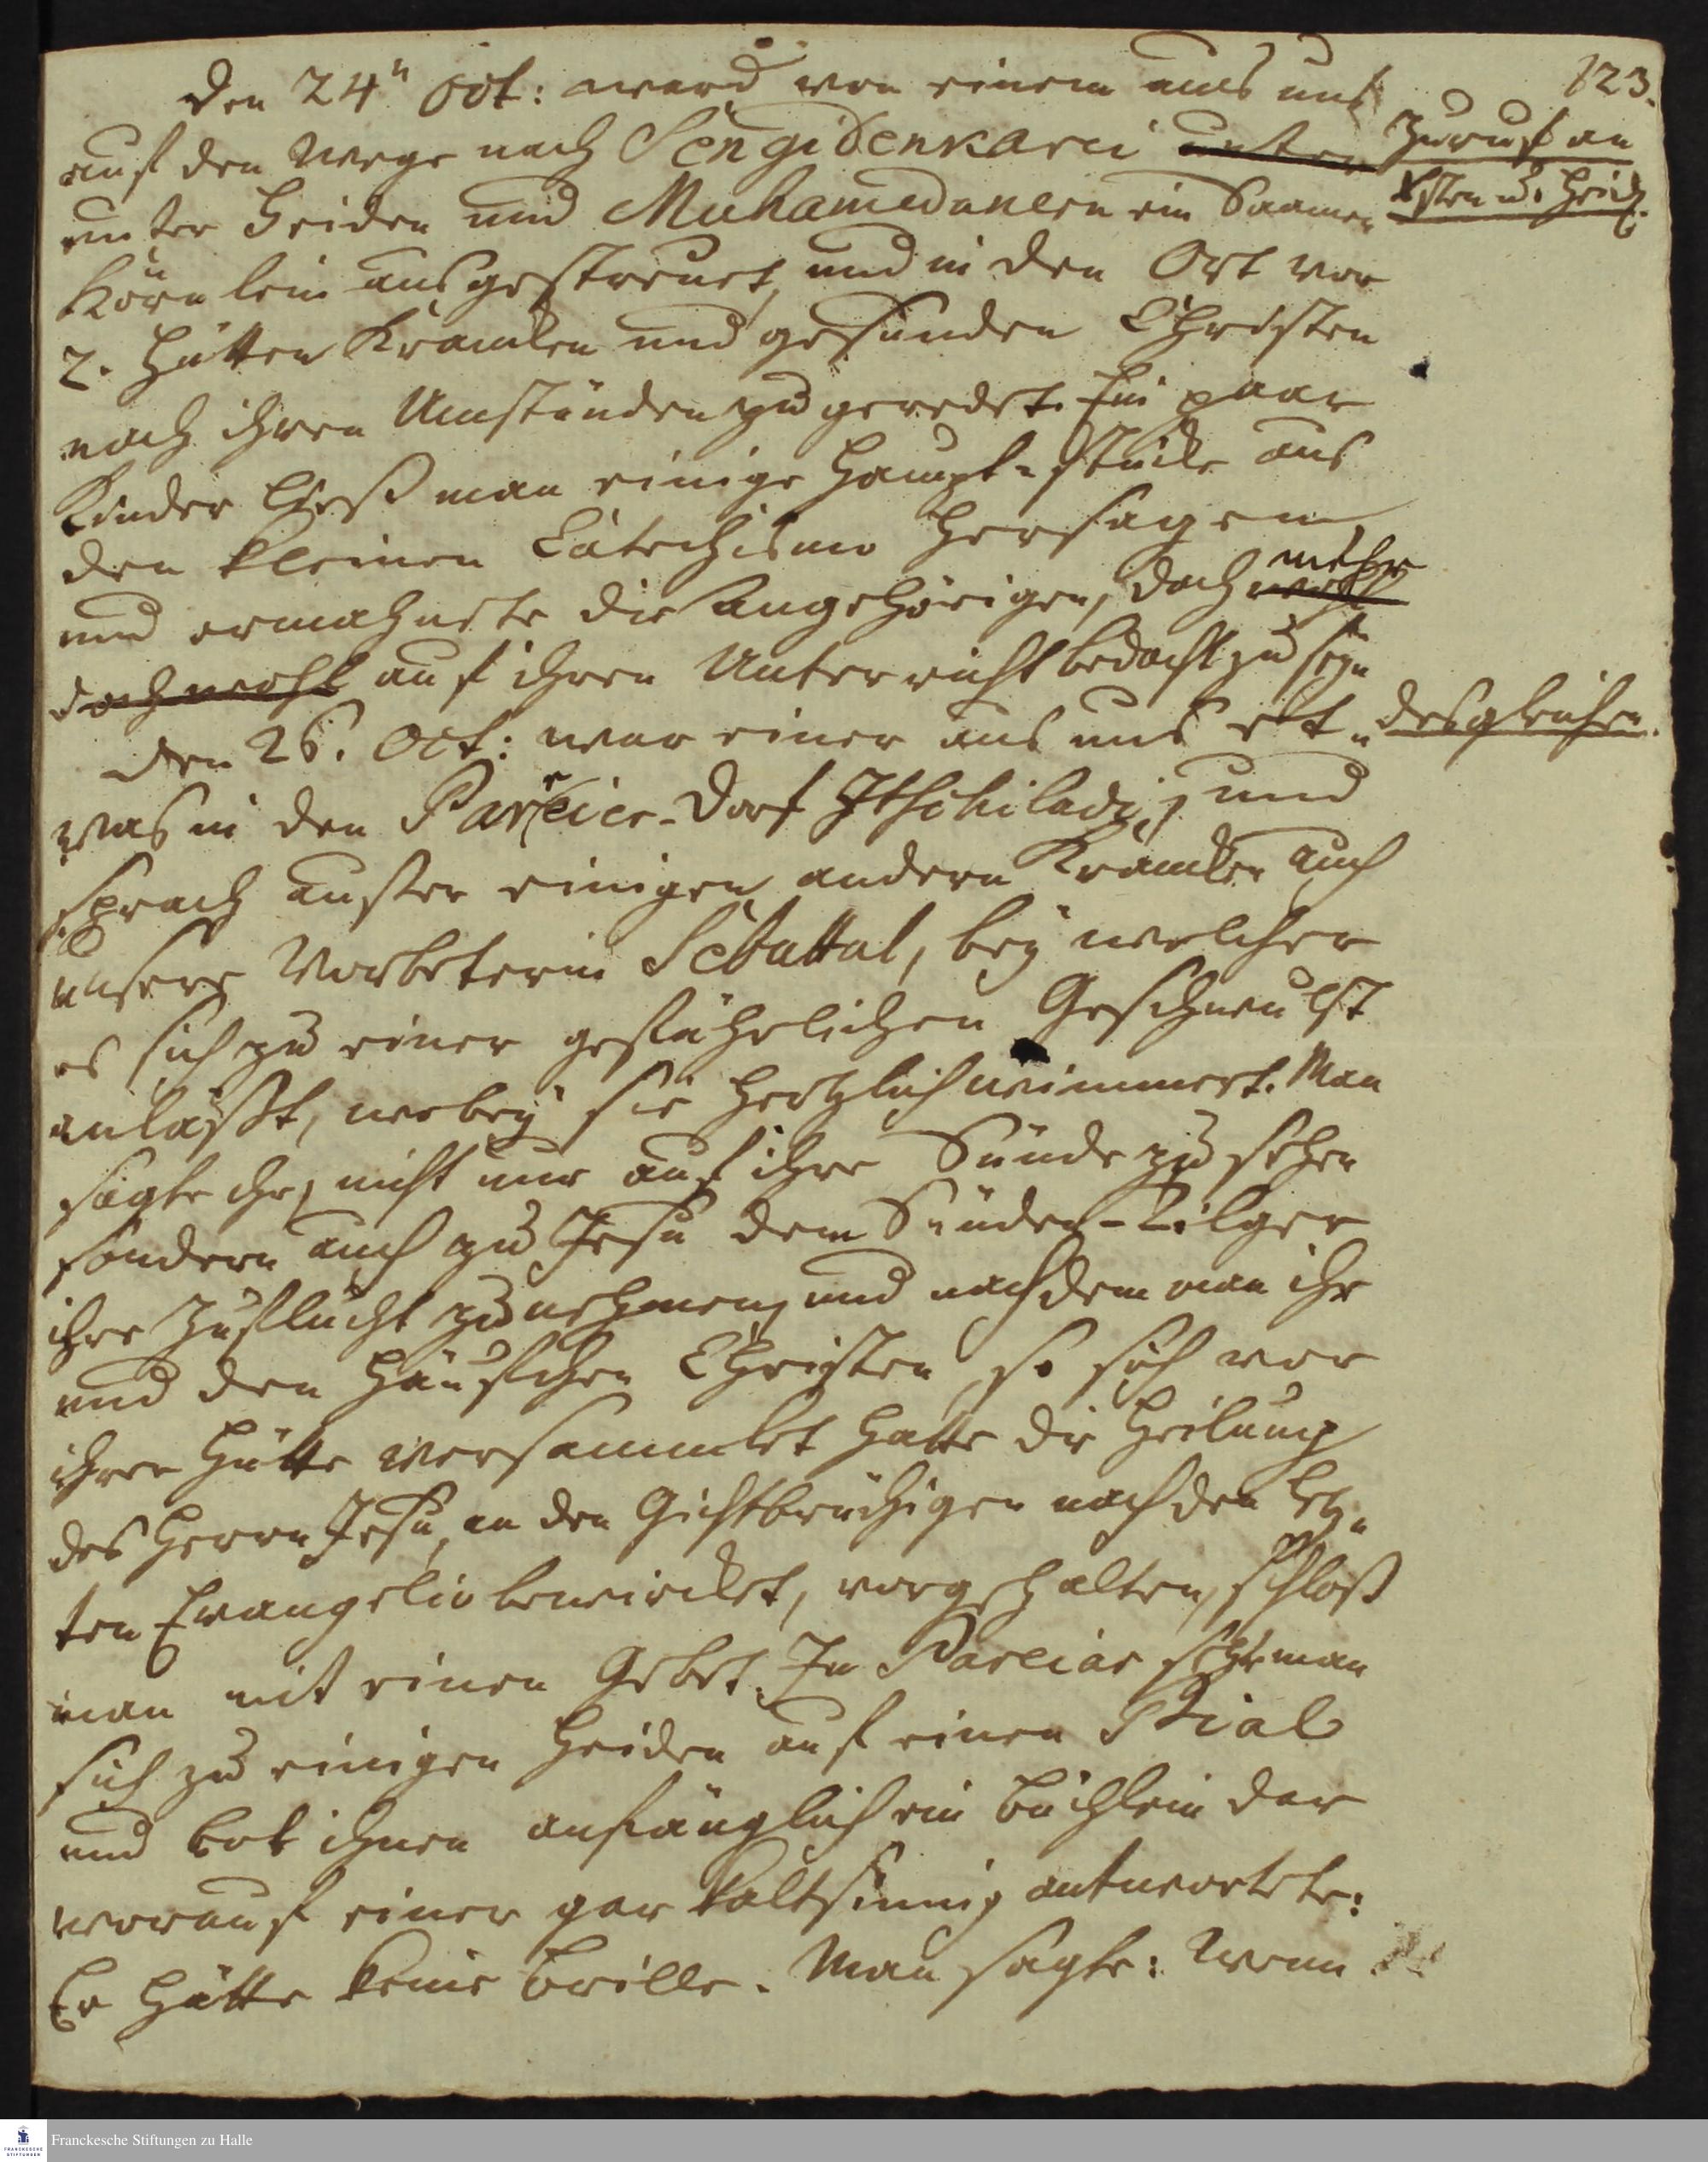 123.
den 24n Oct: ward von einem aus uns
auf den Wege nach Sengidenkarei unter
unter Heiden und Muhamedanern ein Saamen
Körnlein ausgestreuet, und in den Ort vor
2. Hütten Krancken und gesunden Christen
nach ihren Umständen zugeredet. Ein paar
Kinder ließ man einige Haupt-Stücke aus
den kleinen Catechismo hersagen,
und ermahnete die Angehörigen, doch mehr
doch auf ihren Unterricht bedacht zu seyn
den 26. Oct: war einer aus uns et-
was in den Pareier-Dorf Itschiladi, und
sprach ausser einigen andern Krancken auch
unsere Vorbeterin Sebattal, bey welcher
es sich zu einer gefährlichen Geschwulst
anläßt, wobey sie hertzlich wimmert. Man
sagte ihr, nicht nur auf ihre Sünde zu sehen
sondern auch zu Jesu dem Sünden-Tilger
ihre Zuflucht zu nehmen, und nachdem man ihr
und den Häufchen Christen, so sich vor
ihrer Hütte versammlet hatte die Heilung
des Herrn Jesu, an den Gichtbrüchigen nach den letz-
ten Evangelio bewircket, vorgehalten, schloß
man mit einen Gebet. In Pareiar setzte man
sich zu einigen Heiden auf einen Pial
und bot ihnen anfänglich ein Büchlein dar
worauf einer gar kaltsinnig antwortete:
Er hätte keine Brille. Man sagte: Wenn
Zuruf an
Xsten u. Heid.
desgleichen.
Franckesche Stiftungen zu Halle
FRANCKESCHE
STIFTUNGEN